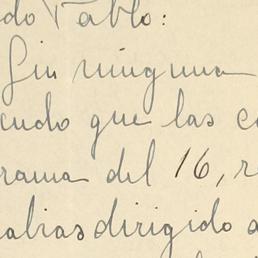 do Pablo:
Sin ninguna
endo que las c
rama del 16, r
abias dirigido a